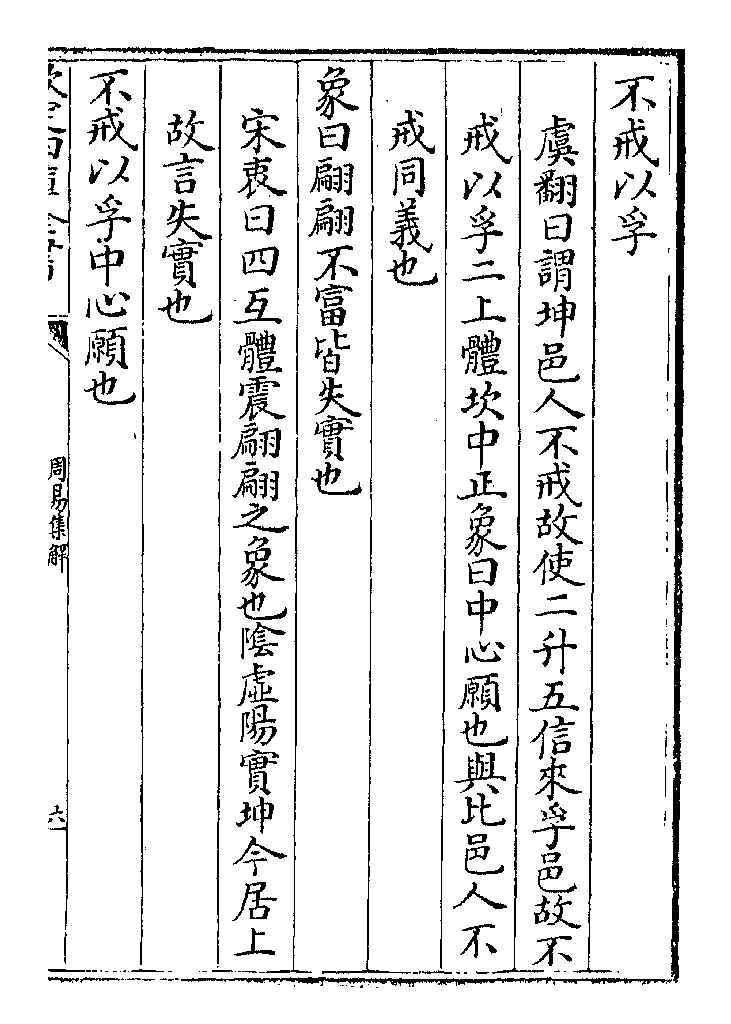 不戒以孚
虞翻曰謂坤邑人不戒故使二升五信來孚邑故不
戒以孚二上體坎中正象曰中心願也與比邑人不
戒同義也
象曰翩翩不富皆失實也
宋衷曰四互體震翩翩之象也陰虛陽實坤今居上
故言失實也
不戒以孚中心願也
周易集解
六